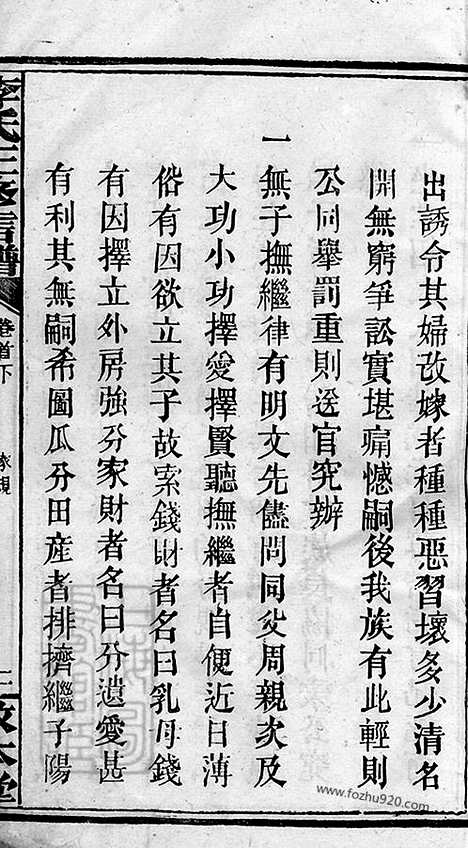 出誘令其婦改嫁者種種惡習壞多少清名
開無窮爭訟實堪痛憾嗣後我族有此輕則
公同舉罰重則送官究辦
一無子撫繼律有明文先儘問同父周親次及
大功小功擇愛擇賢聽撫繼者自便近日薄
俗有因欲立其子故索錢財者名曰乳母錢
有因擇立外房強分家財者名曰分遺愛甚
有利其無嗣希圖瓜分田產者排擠繼子陽
李氏三修言譜
卷首下
家規
三
敦本堂
www.fozhu920.com